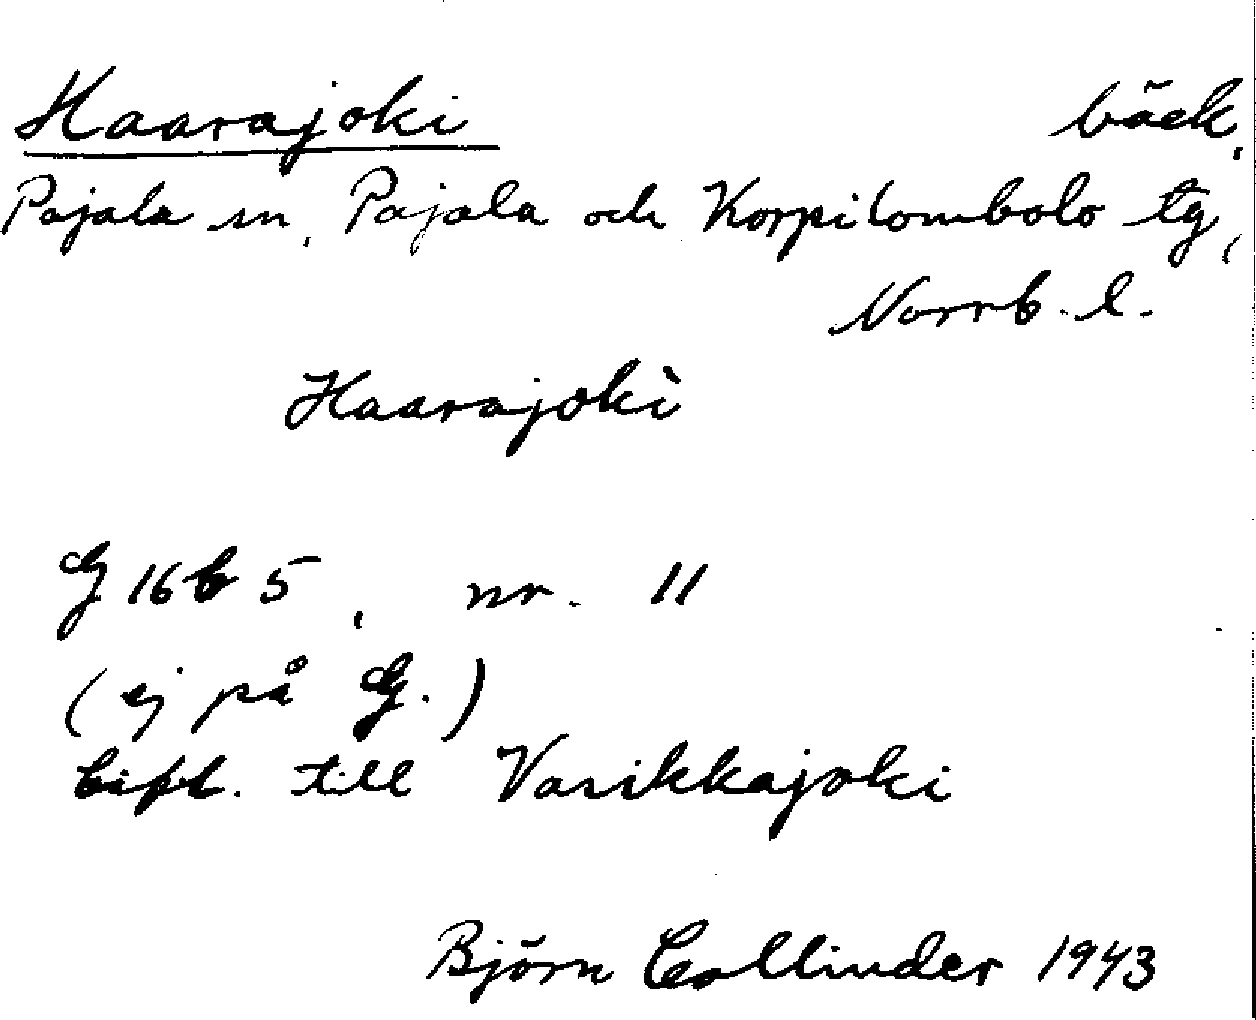 Haarajoki bäck,
Pajala sn, Pajala och Korpilombolo tg,
Norrb. l.
Haarajoki
G 16 b 5, nr. 11
(ej på G.)
bifl. till Vasikkajoki
Björn Collinder 1943